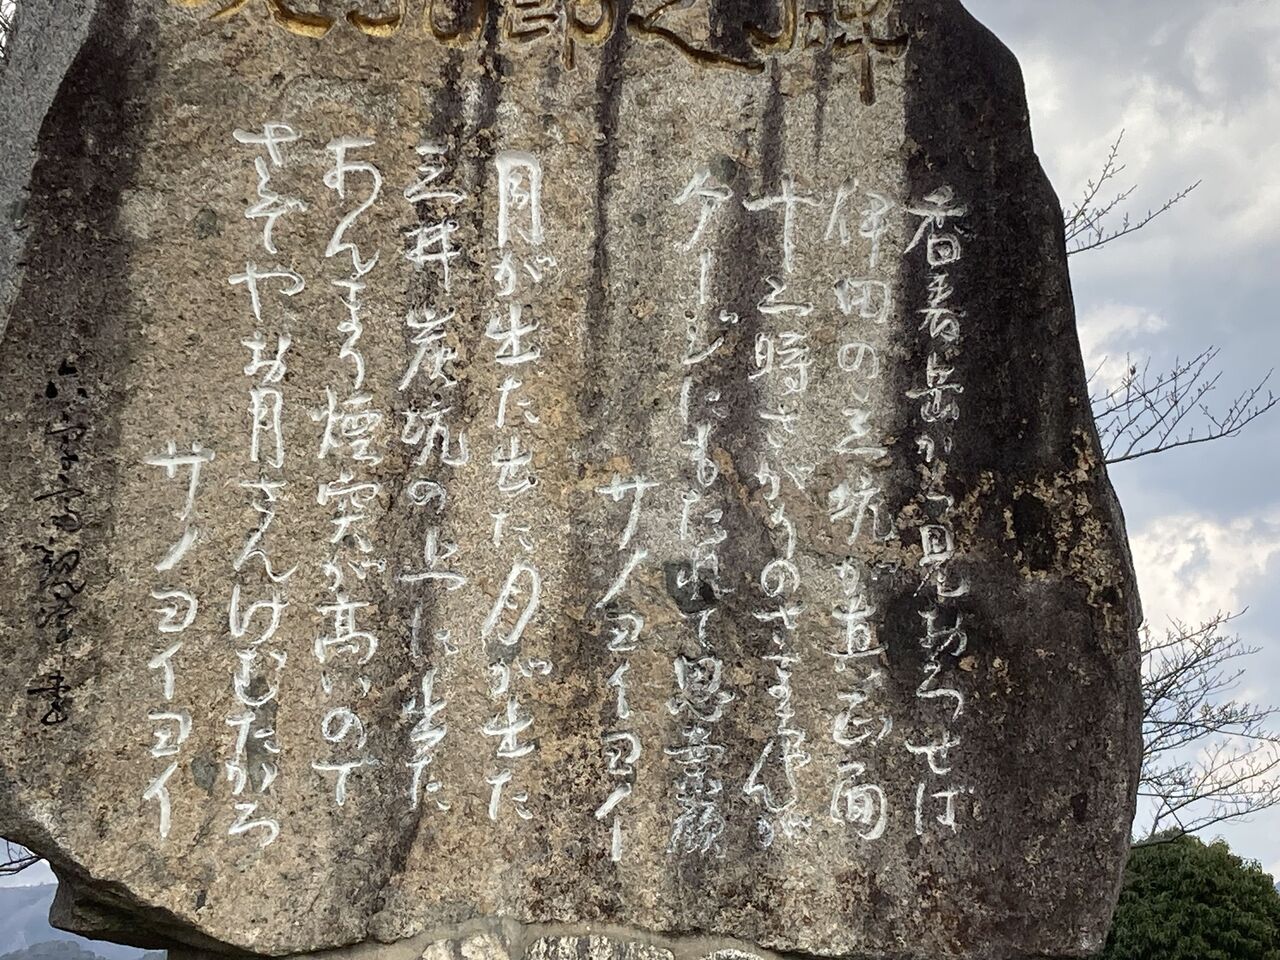 香春岳から見おろせば
伊田の立坑が真正面
十二時さがりのさまさんが
ケージにもたれて思案顔
サノヨイヨイ
月が出た出た月が出た
三井炭坑の上に出た
あんまり煙突が高いので
さぞやお月さんけむたかろ
サノヨイヨイ